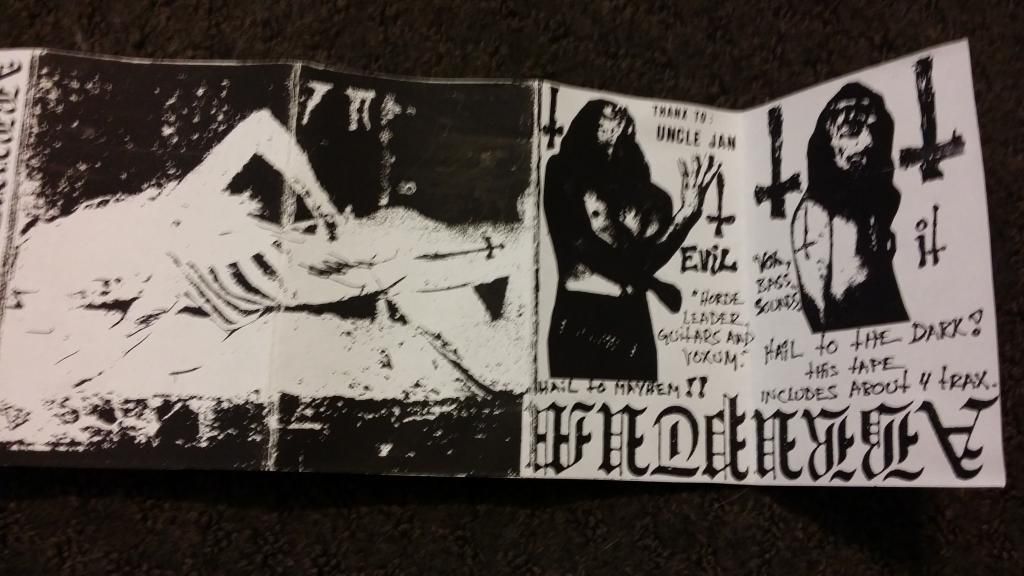 THANX TO:
UNCLE JAN
EVIL
"HORDE
LEADER
GUITARS AND
VOXUM"
HAIL TO MAYHEM!!
it
VOX,
BASS,
SOUNDS
HAIL TO THE DARK!
THIS TAPE
INCLUDES ABOUT 4 TRAX.
ABRUPTUM